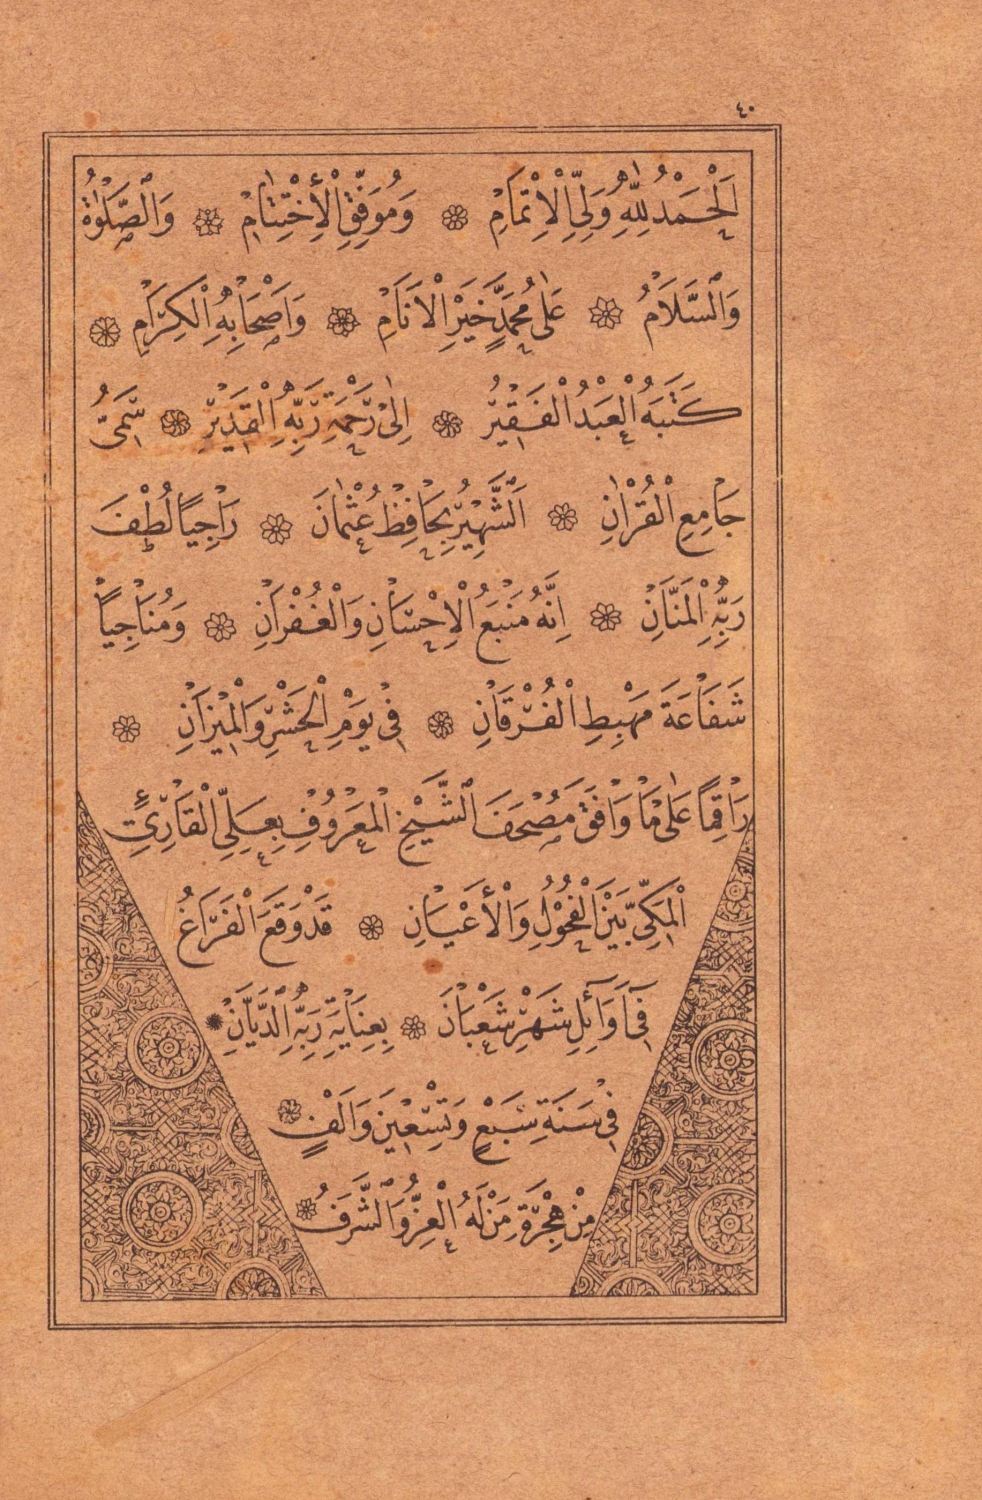 ٤٠
اَلْحَمْدُ لِلّٰهِ وَلِىِّ الْاِتْمَامِ ۞ وَمُوَفِّقِ الْأِخْتِتَامِ ۞ وَالصَّلٰوةُ
وَالسَّلَامُ ۞ عَلٰى مُحَمَّدٍ خَيْرِ الْاَنَامِ ۞ وَاَصْحَابِهِ الْكِرَامِ ۞
كَتَبَهُ الْعَبْدُ الْفَقِيرُ ۞ اِلٰى رَحْمَةِ رَبِّهِ الْقَدِيْرِ ۞ سَمِىُّ
جَامِعِ الْقُرْاٰنِ ۞ اَلشَّهِيْرُ بِحَافِظْ عُثْمَانَ ۞ رَاجِيًا لُطْفَ
رَبِّهِ الْمَنَّانِ ۞ اِنَّهُ مَنْبَعُ الْاِحْسَانِ وَالْغُفْرَانِ ۞ وَمُنَاجِيًا
شَفَاعَةَ مَهْبِطِ الْفُرْقَانِ ۞ فِى يَوْمِ الْحَشْرِ وَالْمِيْزَانِ ۞
رَاقِمًا عَلٰى مَا وَافَقَ مَصْحَفَ الشَّيْخِ الْمَعْرُوْفِ بِعَلِىِّ الْقَارِئِ
الْمَكِّىِّ بَيْنَ الْفُحُوْلِ وَالْأَعْيَانِ ۞ قَدْ وَقَعَ الْفَرَاغُ
فِىٓ اَوَآئِلِ شَهْرِ شَعْبَانَ ۞ بِعِنَايَةِ رَبِّهِ الدَّيَّانِ ۞
فِى سَنَةِ سَبْعٍ وَتِسْعِيْنَ وَاَلْفٍ ۞
مِنْ هِجْرَةِ مَنْ لَهُ الْعِزُّ وَالشَّرَفُ ۞